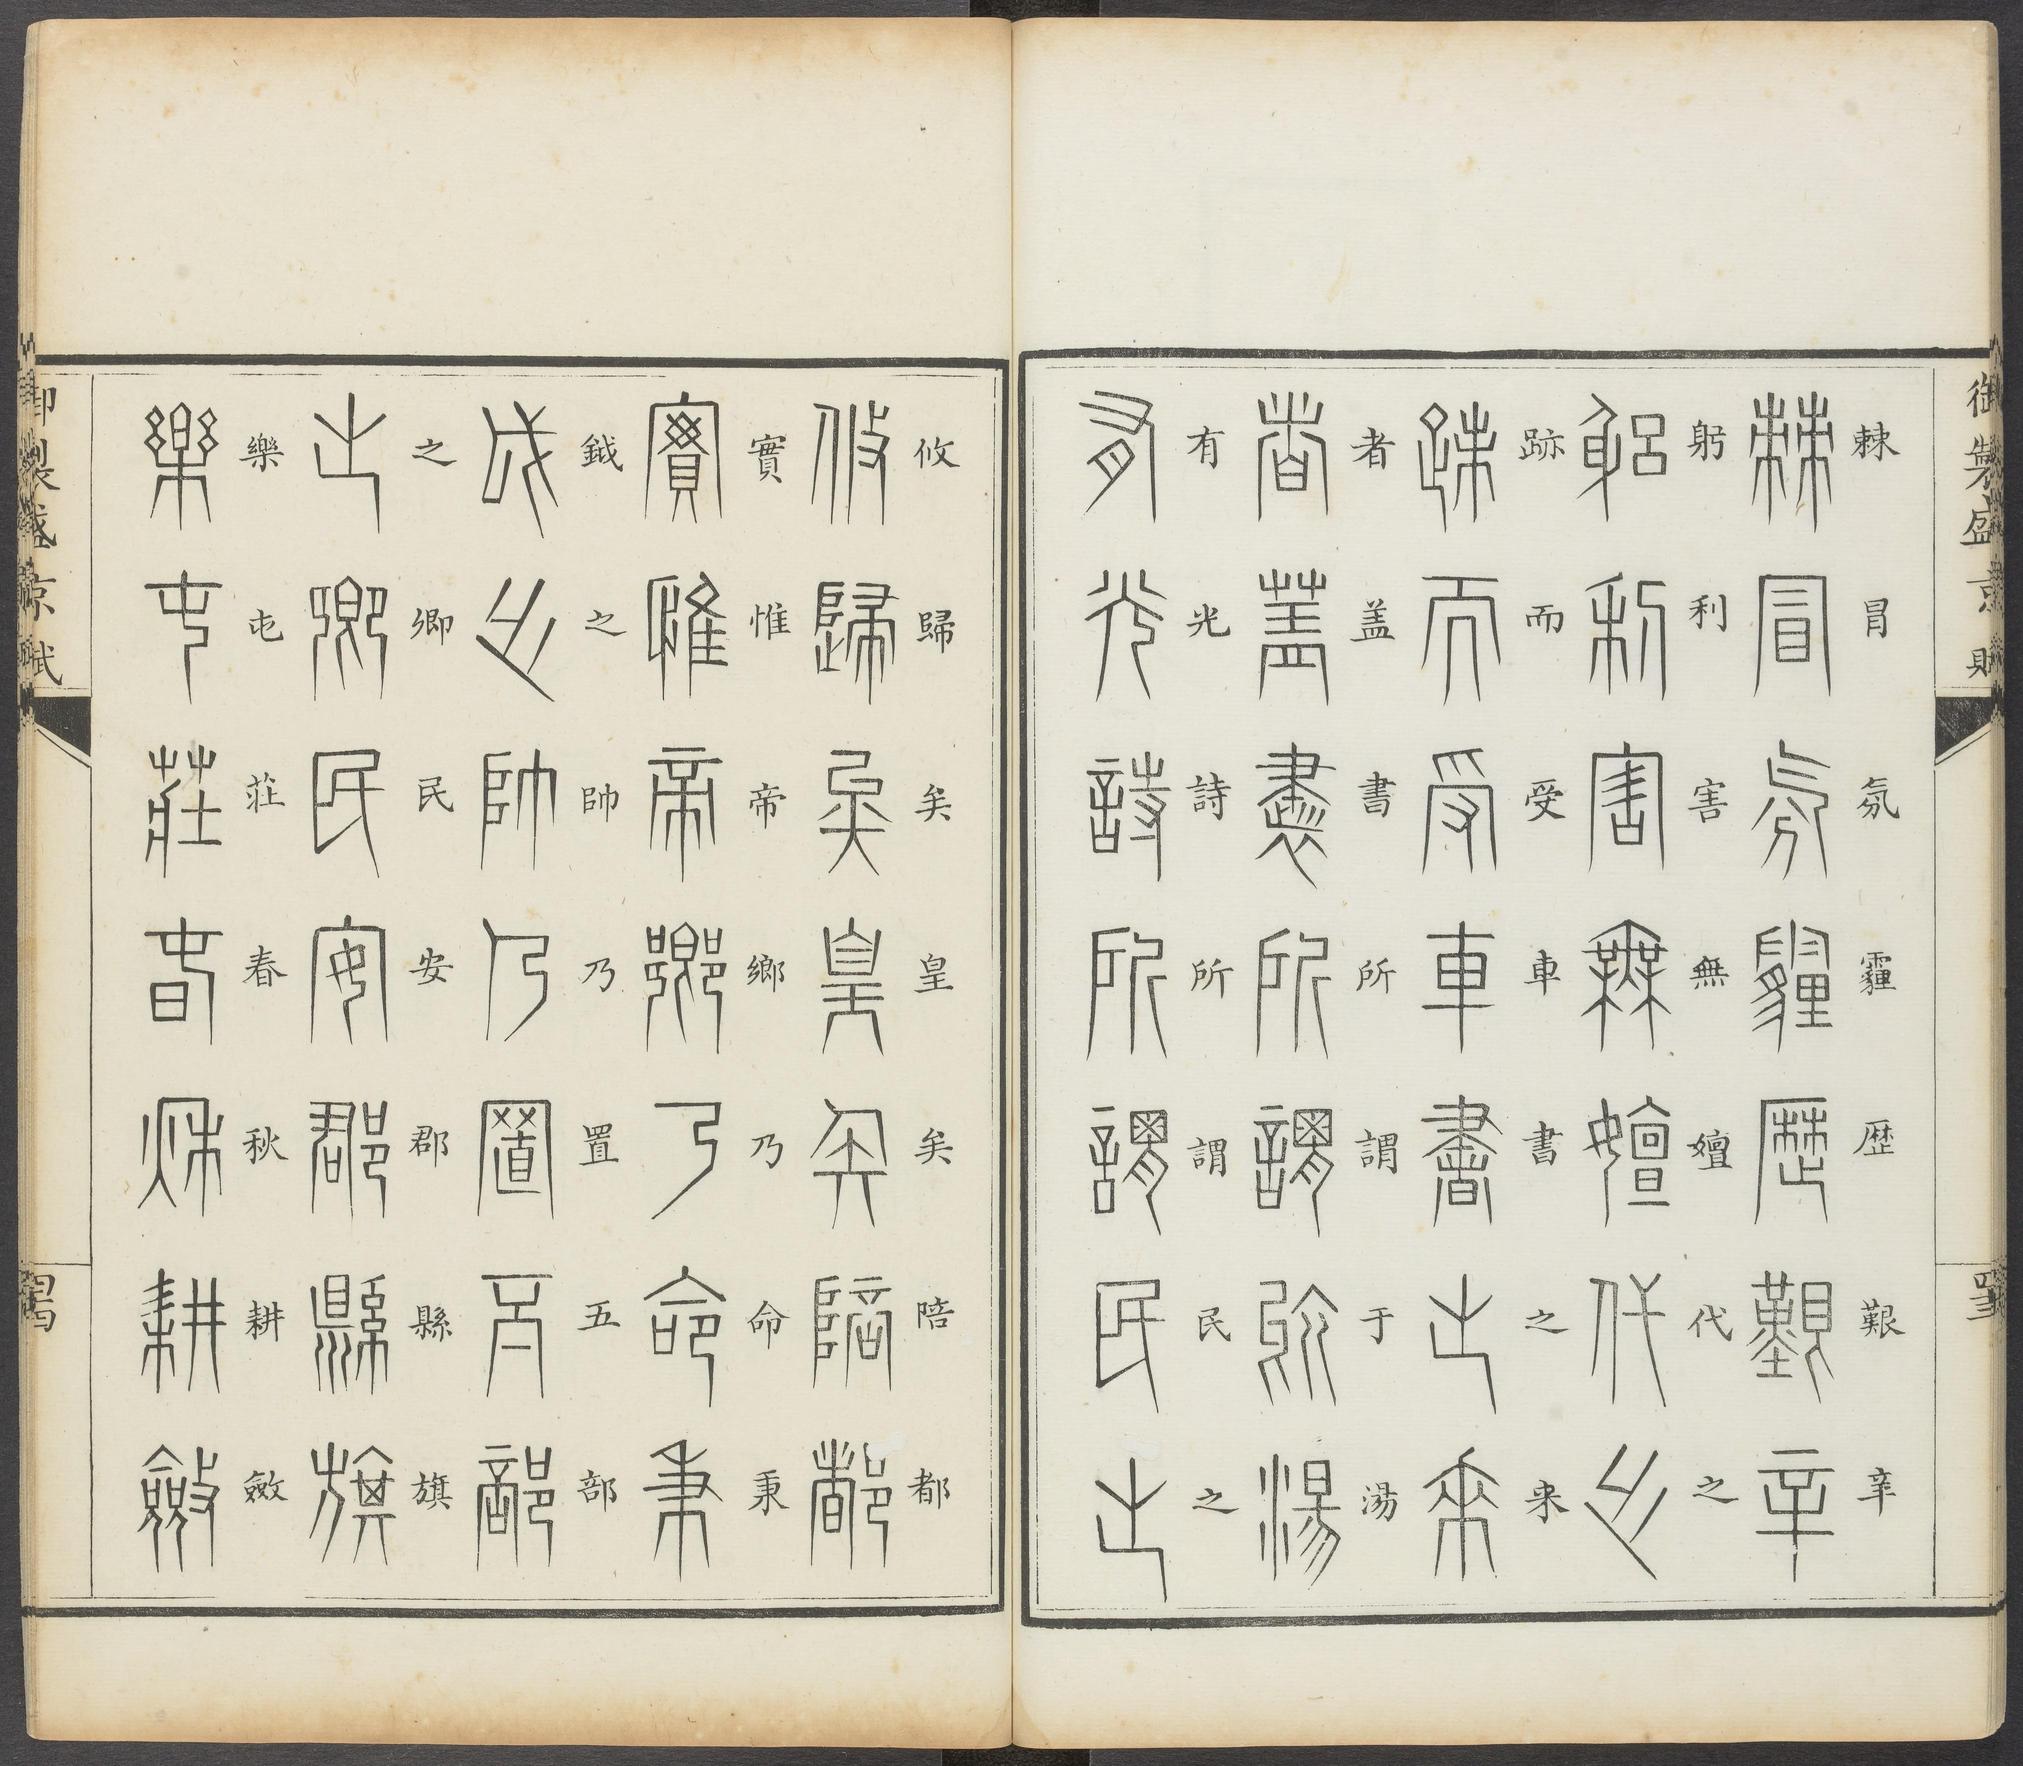 御製盛京賦
棘冒氛霾歴艱辛
躬利害無嬗代之
跡而受車書之来
者盖書所謂于湯
有光詩所謂民之
攸歸矣皇矣陪都
實惟帝鄉乃命秉
鉞之帥乃置五部
之卿民安郡縣旗
樂屯莊春秋耕斂
御製盛京賦